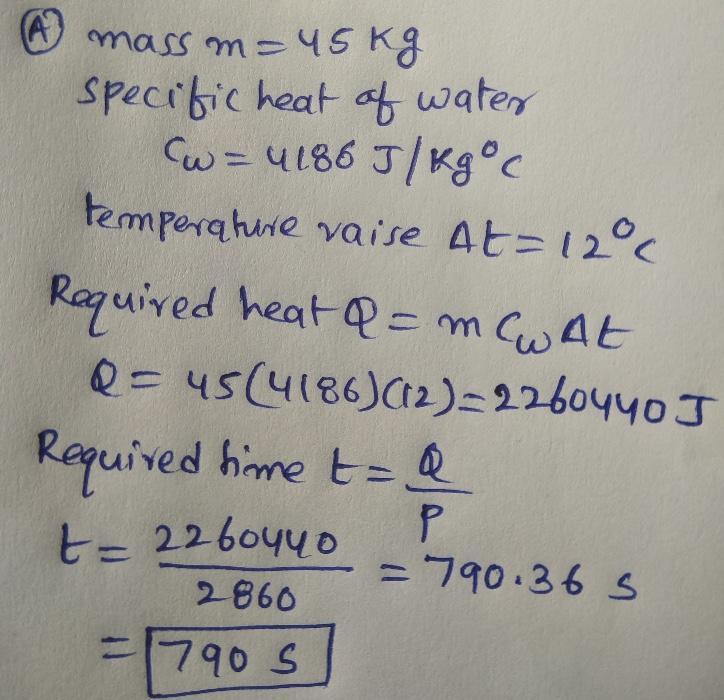 (A) mass m = 45 Kg
specific heat of water
Cw = 4186 J/Kg°C
temperature raise Δt = 12°C
Required heat Q = m Cw Δt
Q = 45(4186)(12) = 2260440 J
Required time t = Q/P
t = 2260440/2860 = 790.36 s
= 790 s